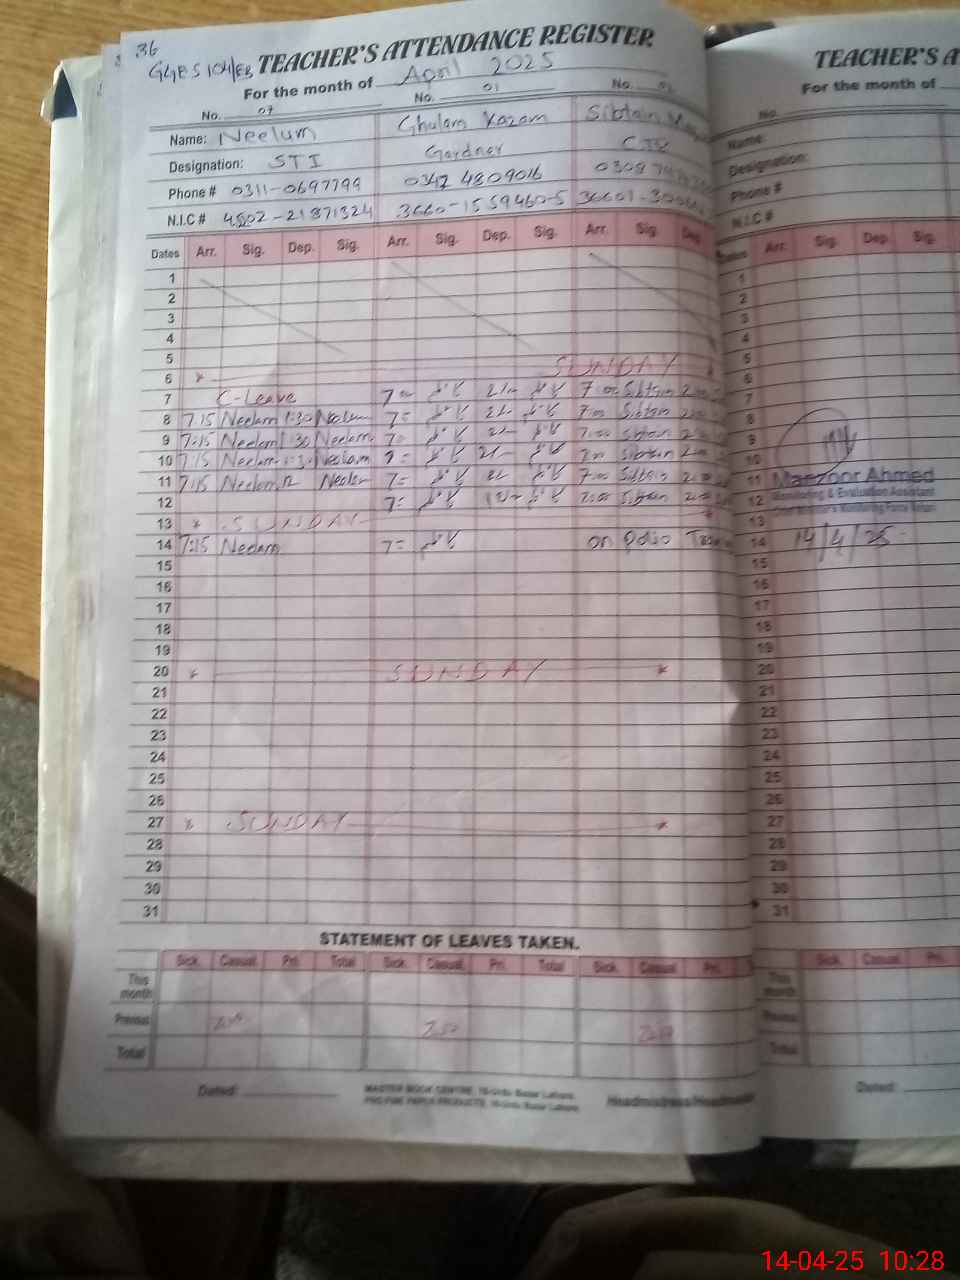 36
GGES 104/EB TEACHER'S ATTENDANCE REGISTER
For the month of April 2025
No. 07 No. 01 No.
Name: Neelum Ghulam Kazam Sibtain
Designation: STI Gardner
Phone # 0311-0697799 0342 4809016 0308
N.I.C # 3660-1559460-5 36601-
Dates Arr. Sig. Dep. Sig. Arr. Sig. Dep. Sig. Arr. Sig. Dep.
1
2
3
4
5
6 SUNDAY
7 C-Leave 7= 7:00 Sibtain
8 7:15 Neelam 1:30 Neelum 7= 7:00 Sibtain
9 7:15 Neelam 1:30 Neelam 7= 7:00 Sibtain
10 7:15 Neelam 1:30 Neelam 7= 7:00 Sibtain
11 7:15 Neelam 12 Neelam 7= 7:00 Sibtain
12 7= 7:00 Sibtain
13 SUNDAY
14 7:15 Neelam 7= on Polio
15
16
17
18
19
20 SUNDAY
21
22
23
24
25
26
27 SUNDAY
28
29
30
31
STATEMENT OF LEAVES TAKEN.
Sick. Casual. Pri. Total Sick. Casual. Pri. Total Sick. Casual. Pri.
This month
Previous
Total
Dated:
MASTER BOOK CENTRE, 16-Urdu Bazar Lahore.
PRO FINE PAPER PRODUCTS, 16-Urdu Bazar Lahore.
Headmistress/Headmaster
TEACHER'S A
For the month of
No.
Name:
Designation:
Phone #
N.I.C #
Dates Arr. Sig. Dep. Sig.
1
2
3
4
5
6
7
8
9
10
11 Manzoor Ahmed
12 Monitoring & Evaluation Assistant
13
14 14/4/25
15
16
17
18
19
20
21
22
23
24
25
26
27
28
29
30
31
Sick. Casual. Pri.
This month
Previous
Total
Dated:
14-04-25 10:28